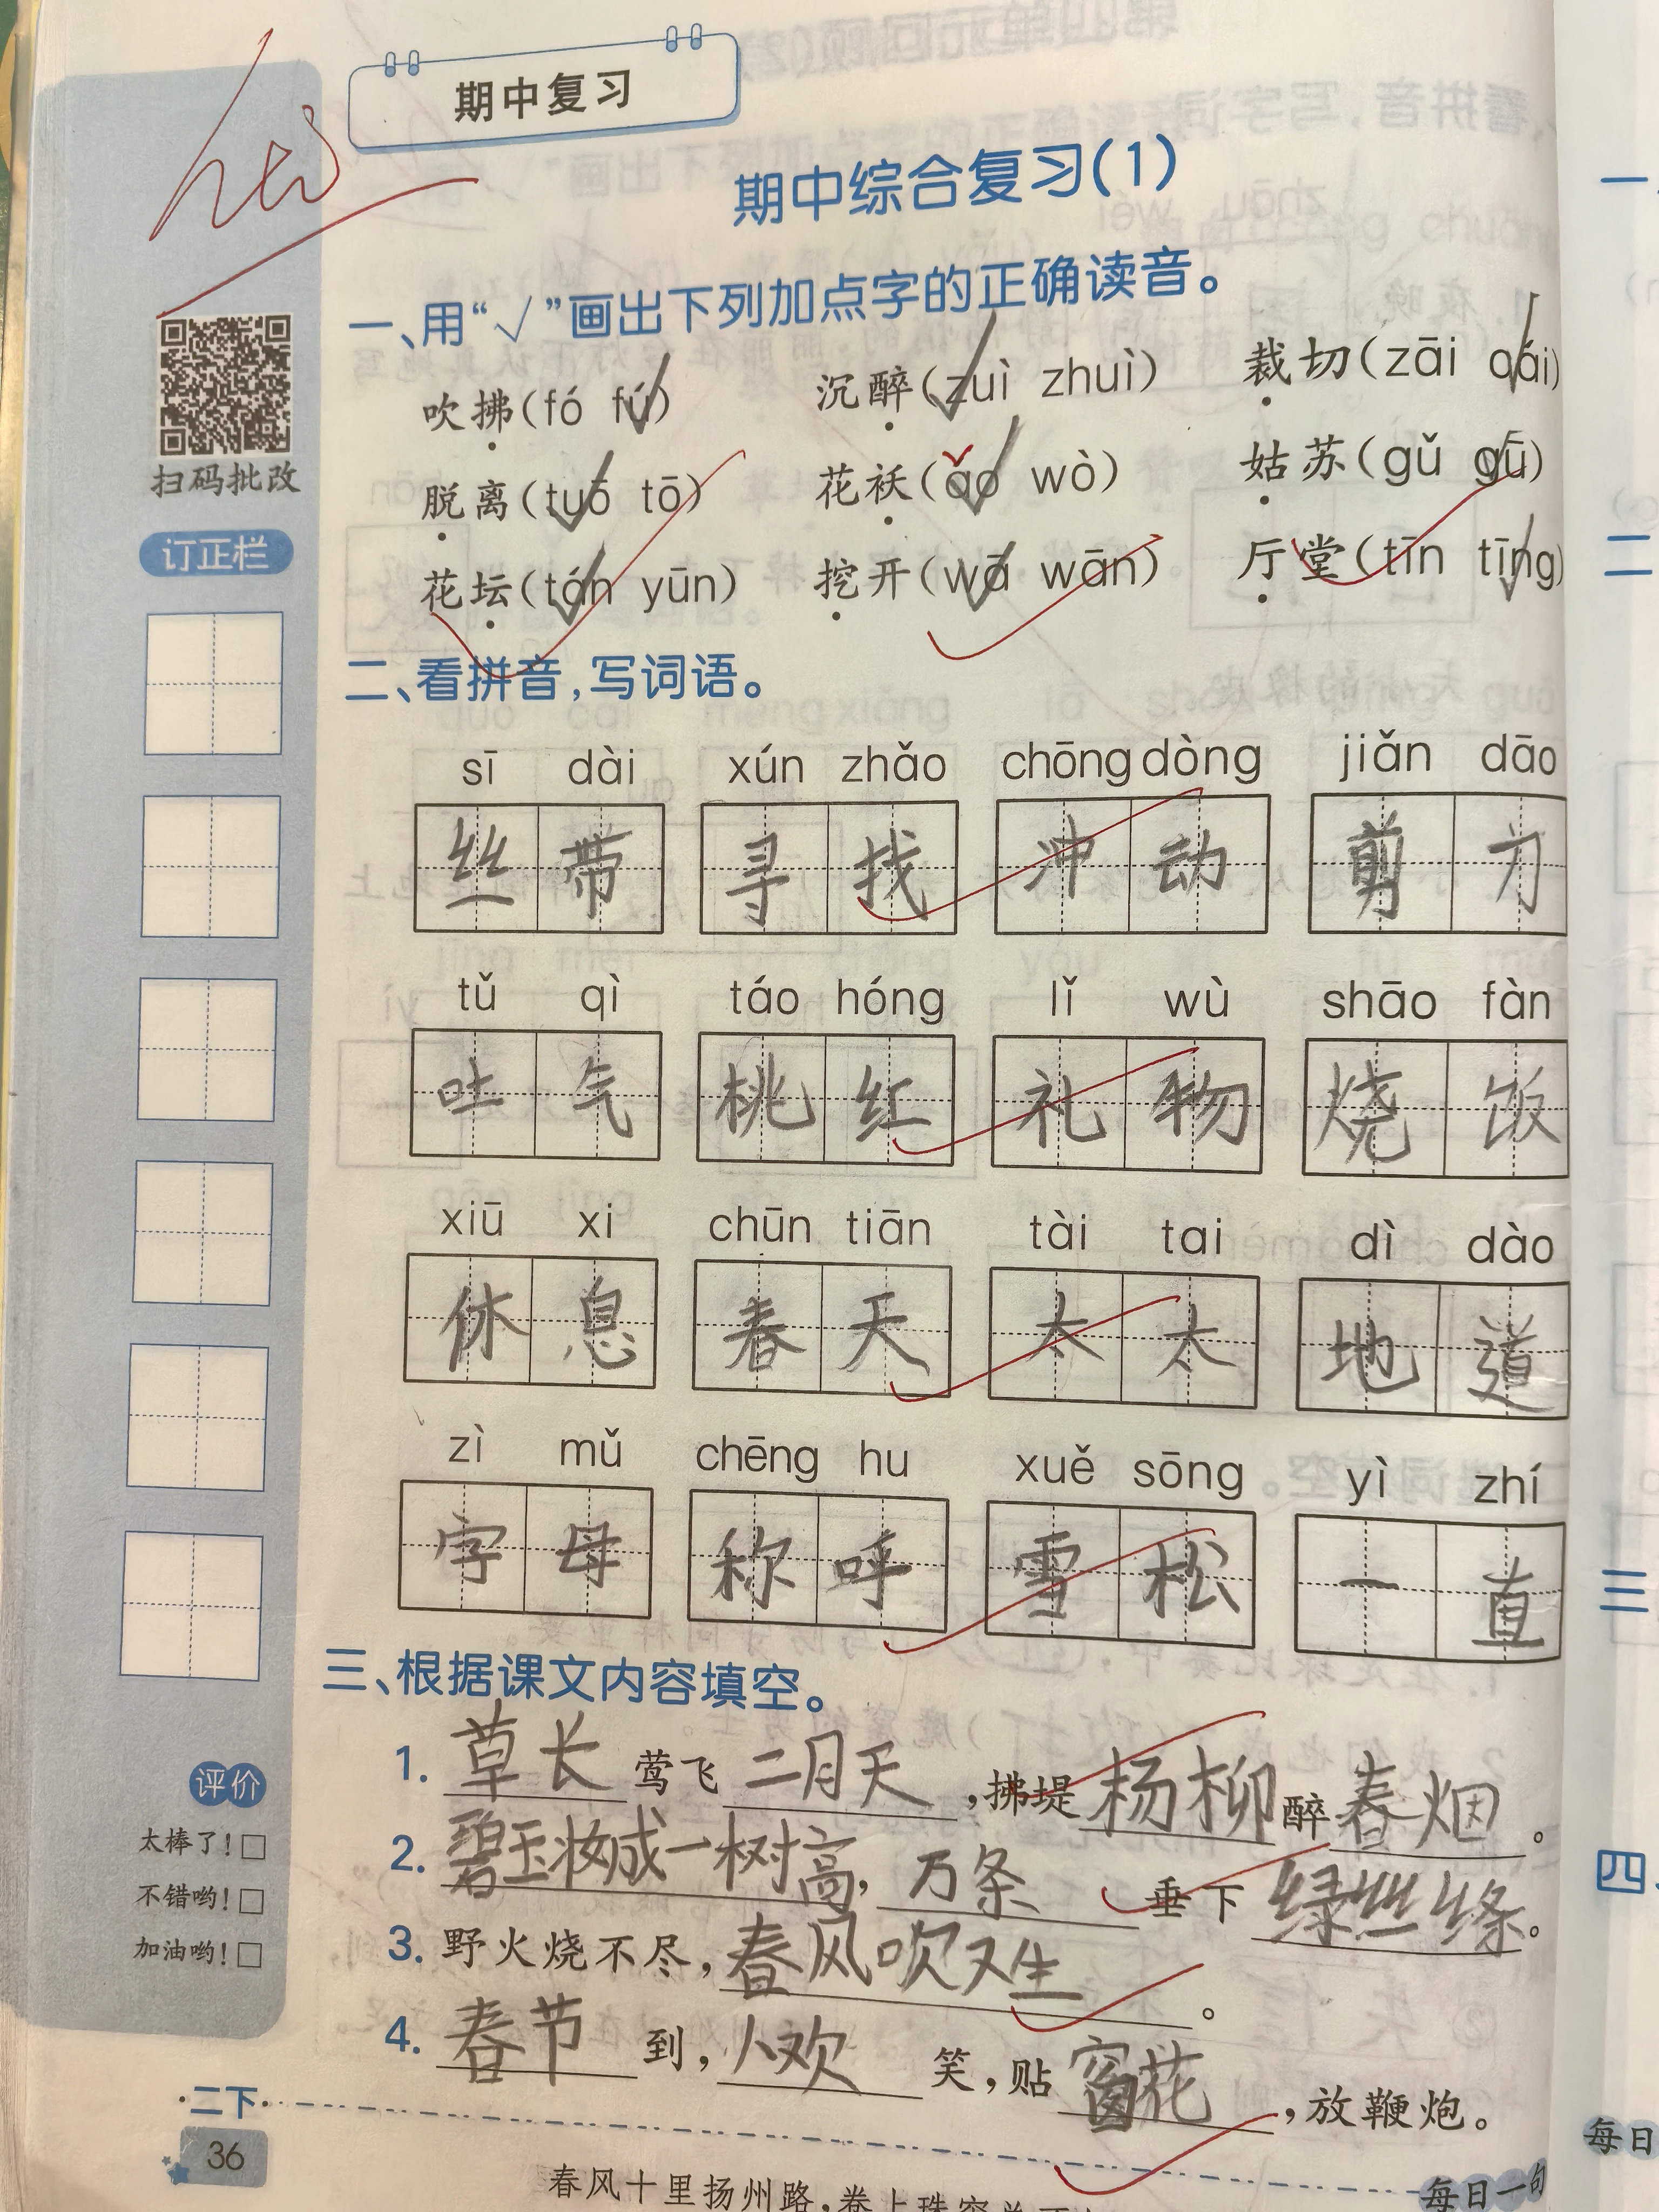 期中复习
期中综合复习(1)
一、用“√”画出下列加点字的正确读音。
吹拂(fó fú) 沉醉(zuì zhuì) 裁切(zāi cái)
脱离(tuō tō) 花袄(ǎo wò) 姑苏(gǔ gū)
花坛(tán yūn) 挖开(wā wān) 厅堂(tīn tīng)
扫码批改
订正栏
二、看拼音,写词语。
sī dài xún zhǎo chōng dòng jiǎn dāo
丝带 寻找 冲动 剪刀
tǔ qì táo hóng lǐ wù shāo fàn
吐气 桃红 礼物 烧饭
xiū xi chūn tiān tài tai dì dào
休息 春天 太太 地道
zì mǔ chēng hu xuě sōng yì zhí
字母 称呼 雪松 一直
三、根据课文内容填空。
1. 草长莺飞二月天,拂堤杨柳醉春烟。
2. 碧玉妆成一树高,万条垂下绿丝绦。
3. 野火烧不尽,春风吹又生。
4. 春节到,人欢笑,贴窗花,放鞭炮。
评价
太棒了!□
不错哟!□
加油哟!□
·二下·
36
春风十里扬州路,卷上珠帘总不
每日一句
一
二
三
四、
每日